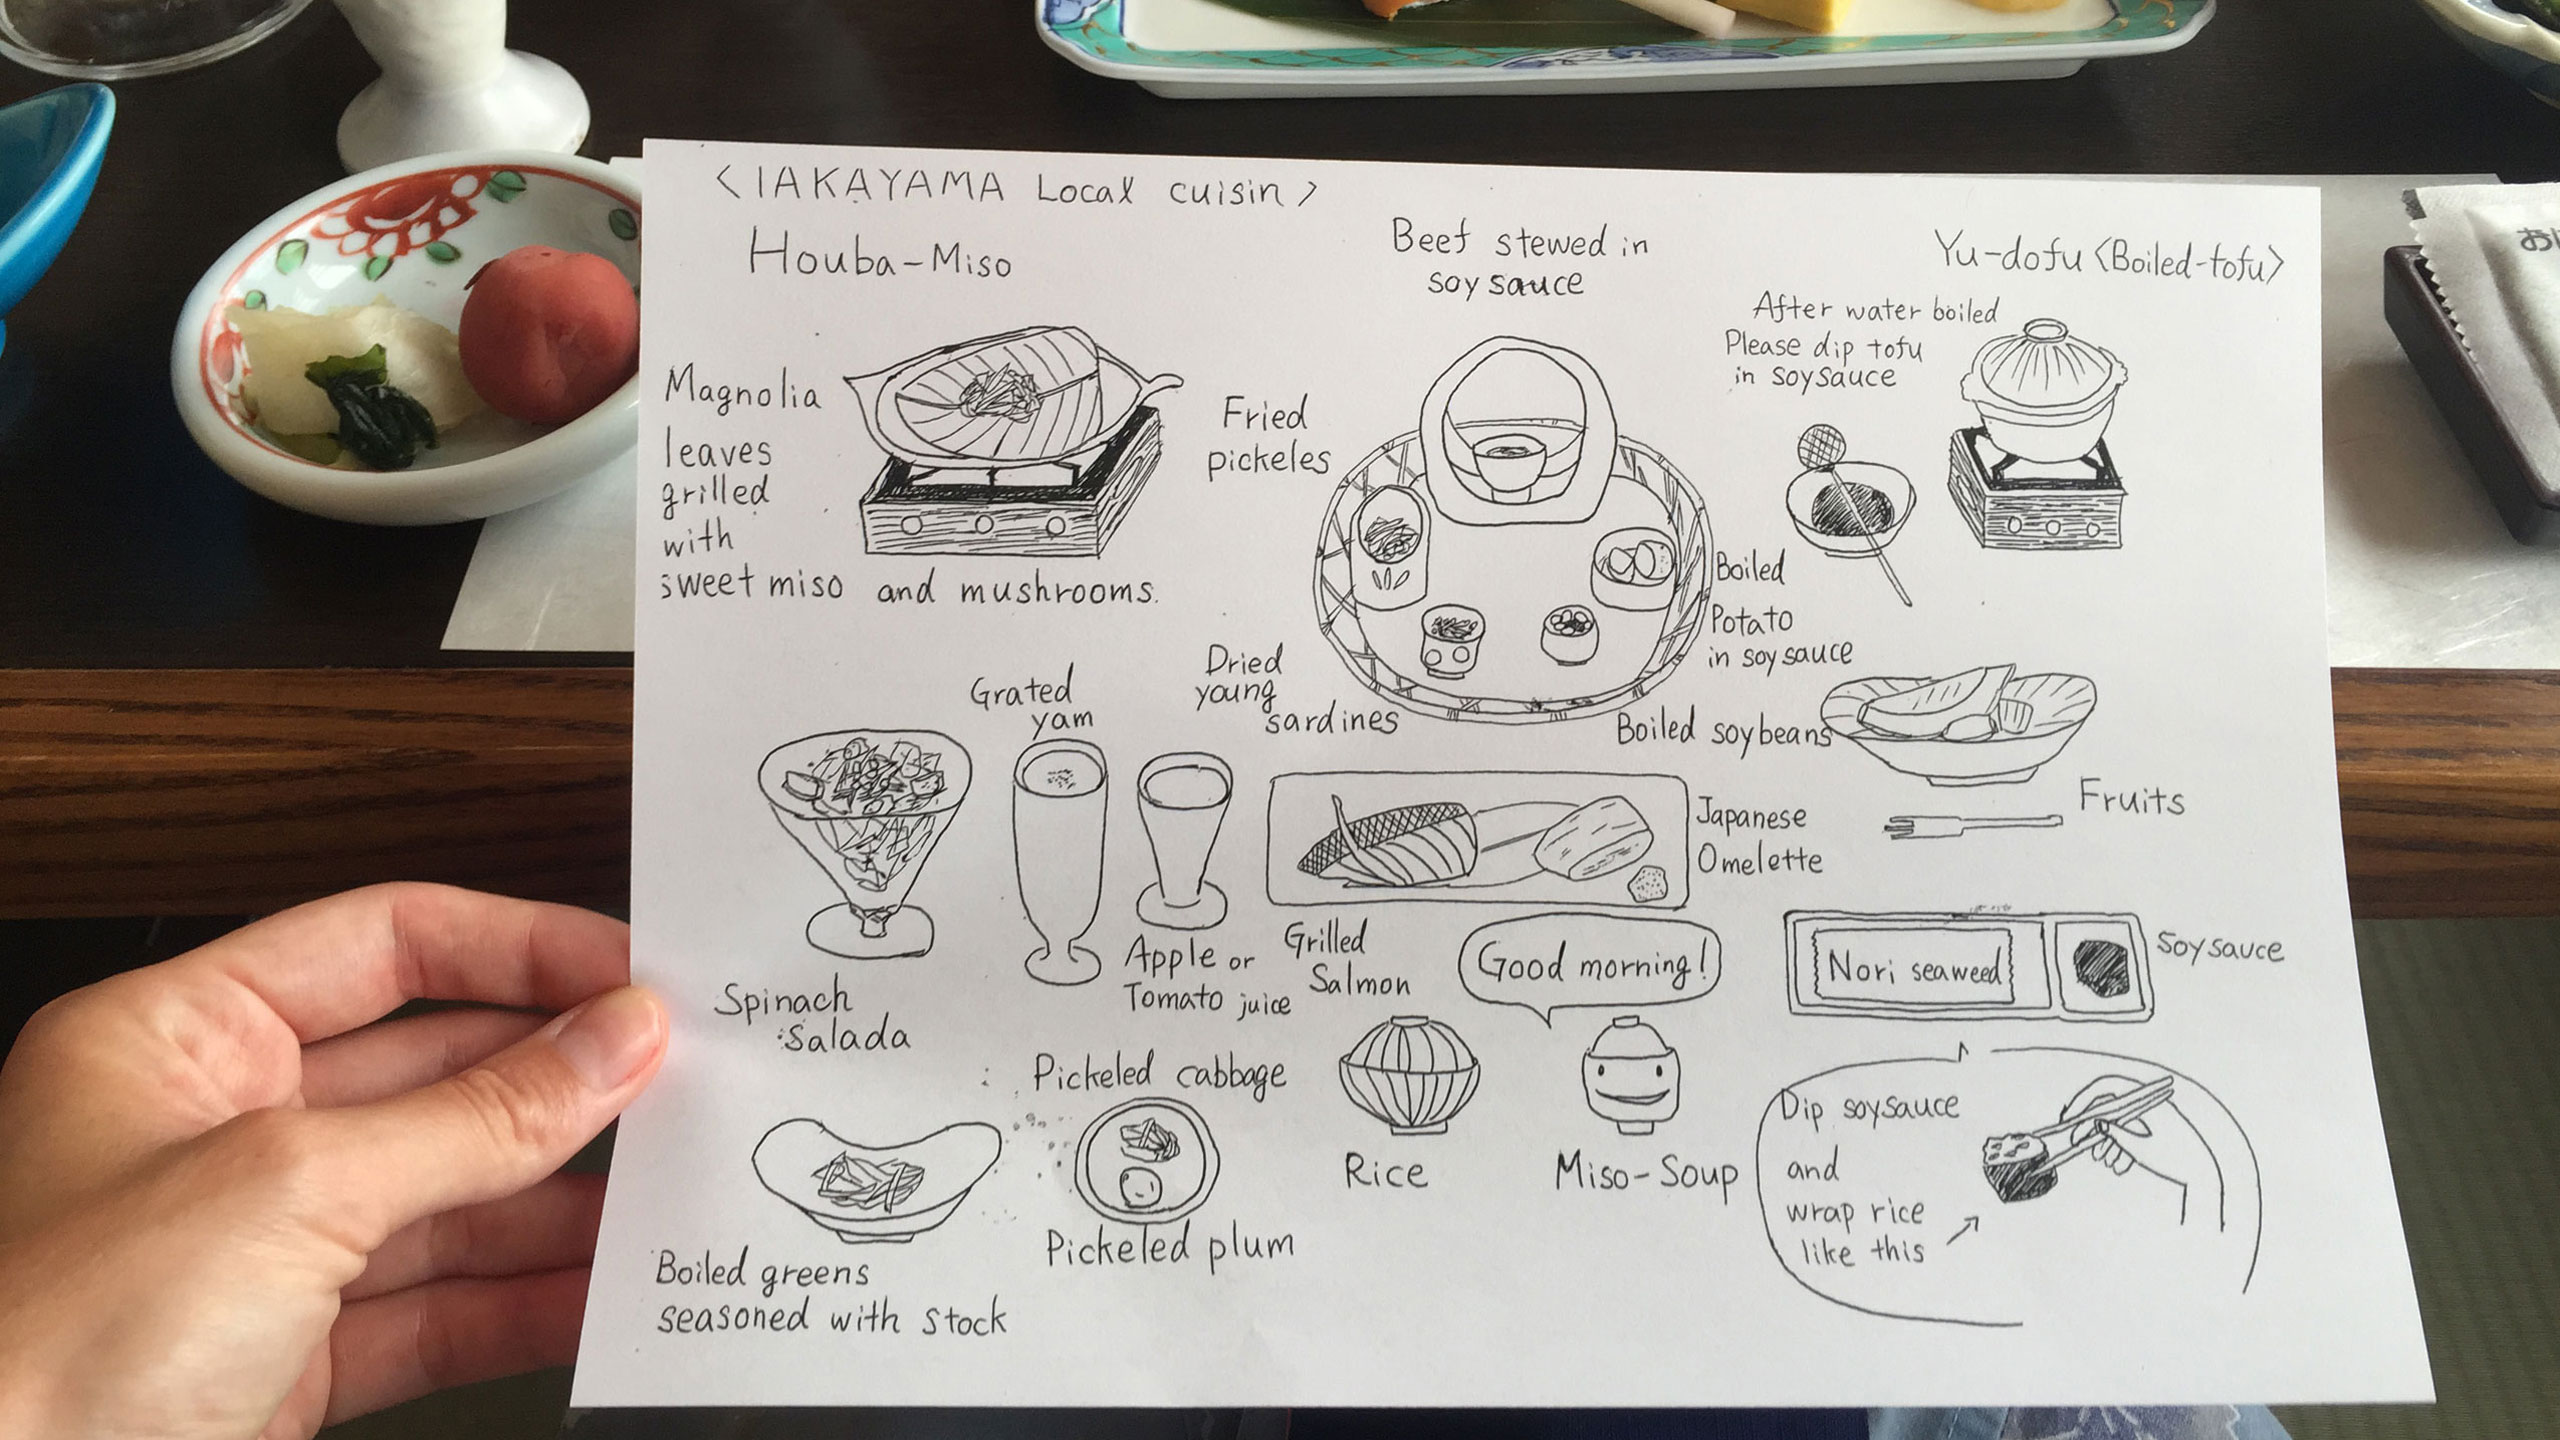 <IAKAYAMA Local cuisin>
Houba-Miso
Magnolia
leaves
grilled
with
sweet miso and mushrooms.
Beef stewed in
soy sauce
Fried
pickeles
Boiled
Potato
in soysauce
Dried
young
sardines
Boiled soybeans
Yu-dofu <Boiled-tofu>
After water boiled
Please dip tofu
in soysauce
Grated
yam
Spinach
Salada
Apple or
Tomato juice
Grilled
Salmon
Japanese
Omelette
Fruits
Good morning!
Nori seaweed
Soysauce
Boiled greens
seasoned with stock
Pickeled cabbage
Pickeled plum
Rice
Miso-Soup
Dip soysauce
and
wrap rice
like this